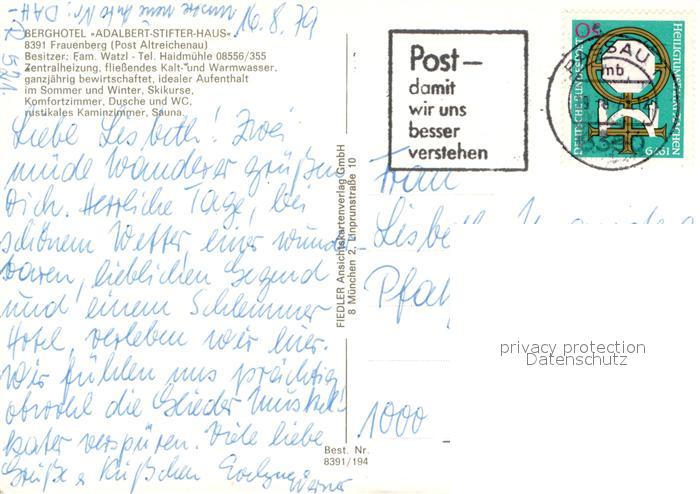 16.8.79
BERGHOTEL »ADALBERT-STIFTER-HAUS«
8391 Frauenberg (Post Altreichenau)
Besitzer: Fam. Watzl - Tel. Haidmühle 08556/355
Zentralheizung, fließendes Kalt- und Warmwasser,
ganzjährig bewirtschaftet, idealer Aufenthalt
im Sommer und Winter, Skikurse,
Komfortzimmer, Dusche und WC,
rustikales Kaminzimmer, Sauna.
Liebe Lisbeth! Zwei
müde Wanderer grüßen
Dich. Herrliche Tage, bei
schönem Wetter einer wunder-
baren, lieblichen Gegend
und einem Schlemmer
Hotel, verleben wir hier.
Wir fühlen uns prächtig
obwohl die Glieder Muskel-
kater verspüren. Viele liebe
Grüße & Küßchen Evelyne
Werner
FIEDLER Ansichtskartenverlag GmbH
8 München 2, Linprunstraße 10
Best. Nr.
8391/194
Post —
damit
wir uns
besser
verstehen
PASSAU
mb
DEUTSCHE BUNDESPOST
50
HEILIGTUMSFAHRT AACHEN
1979
Frau
Lisbe
Pfal
1000
privacy protection
Datenschutz